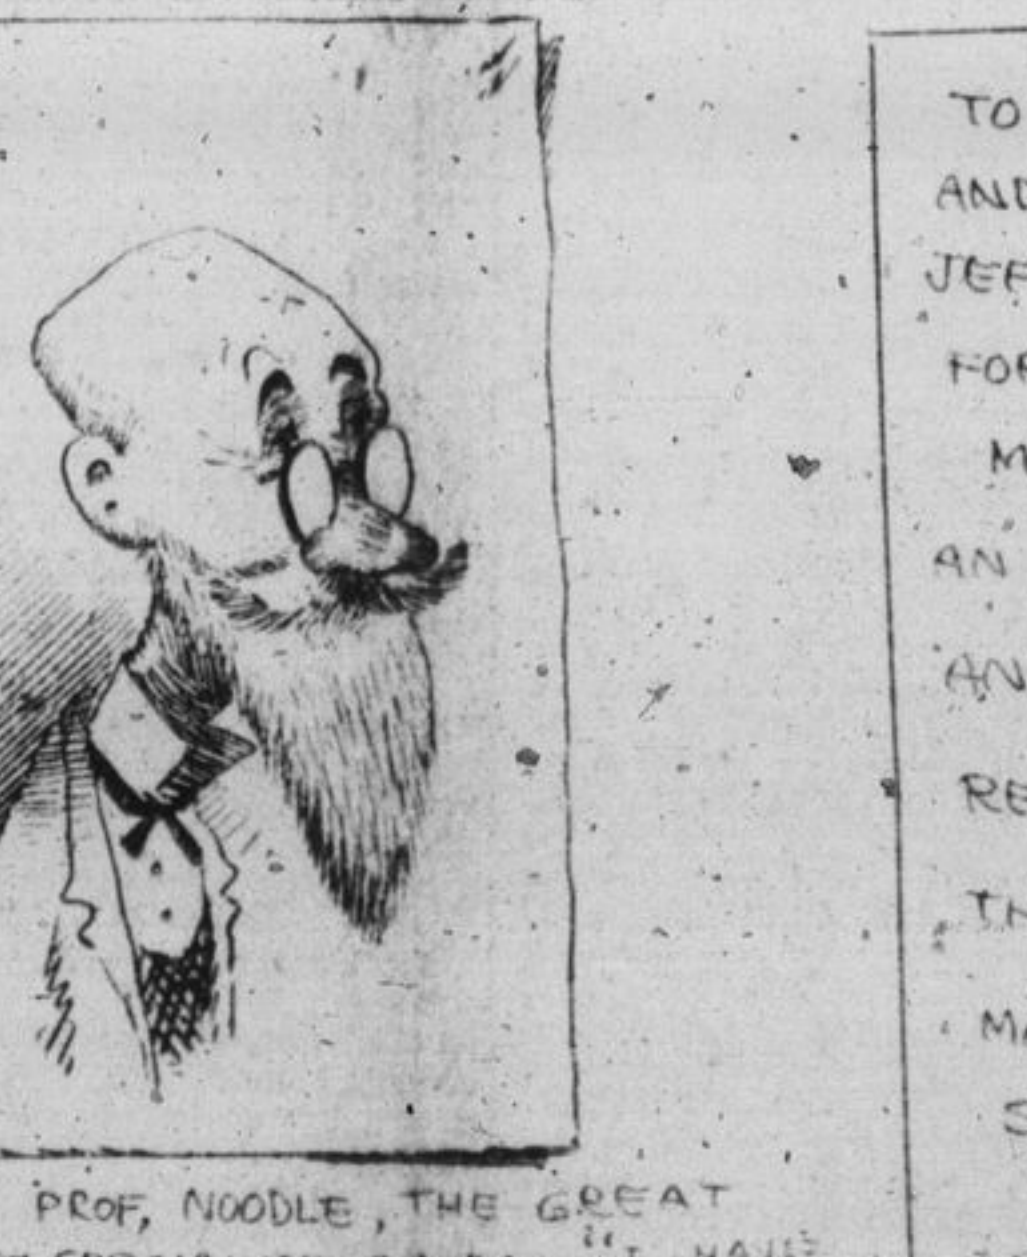 PROF, NOODLE, THE GREAT
"I HAVE
TO
AND
JEF
FOR
M
AN
AN
RE
TH
MA
S